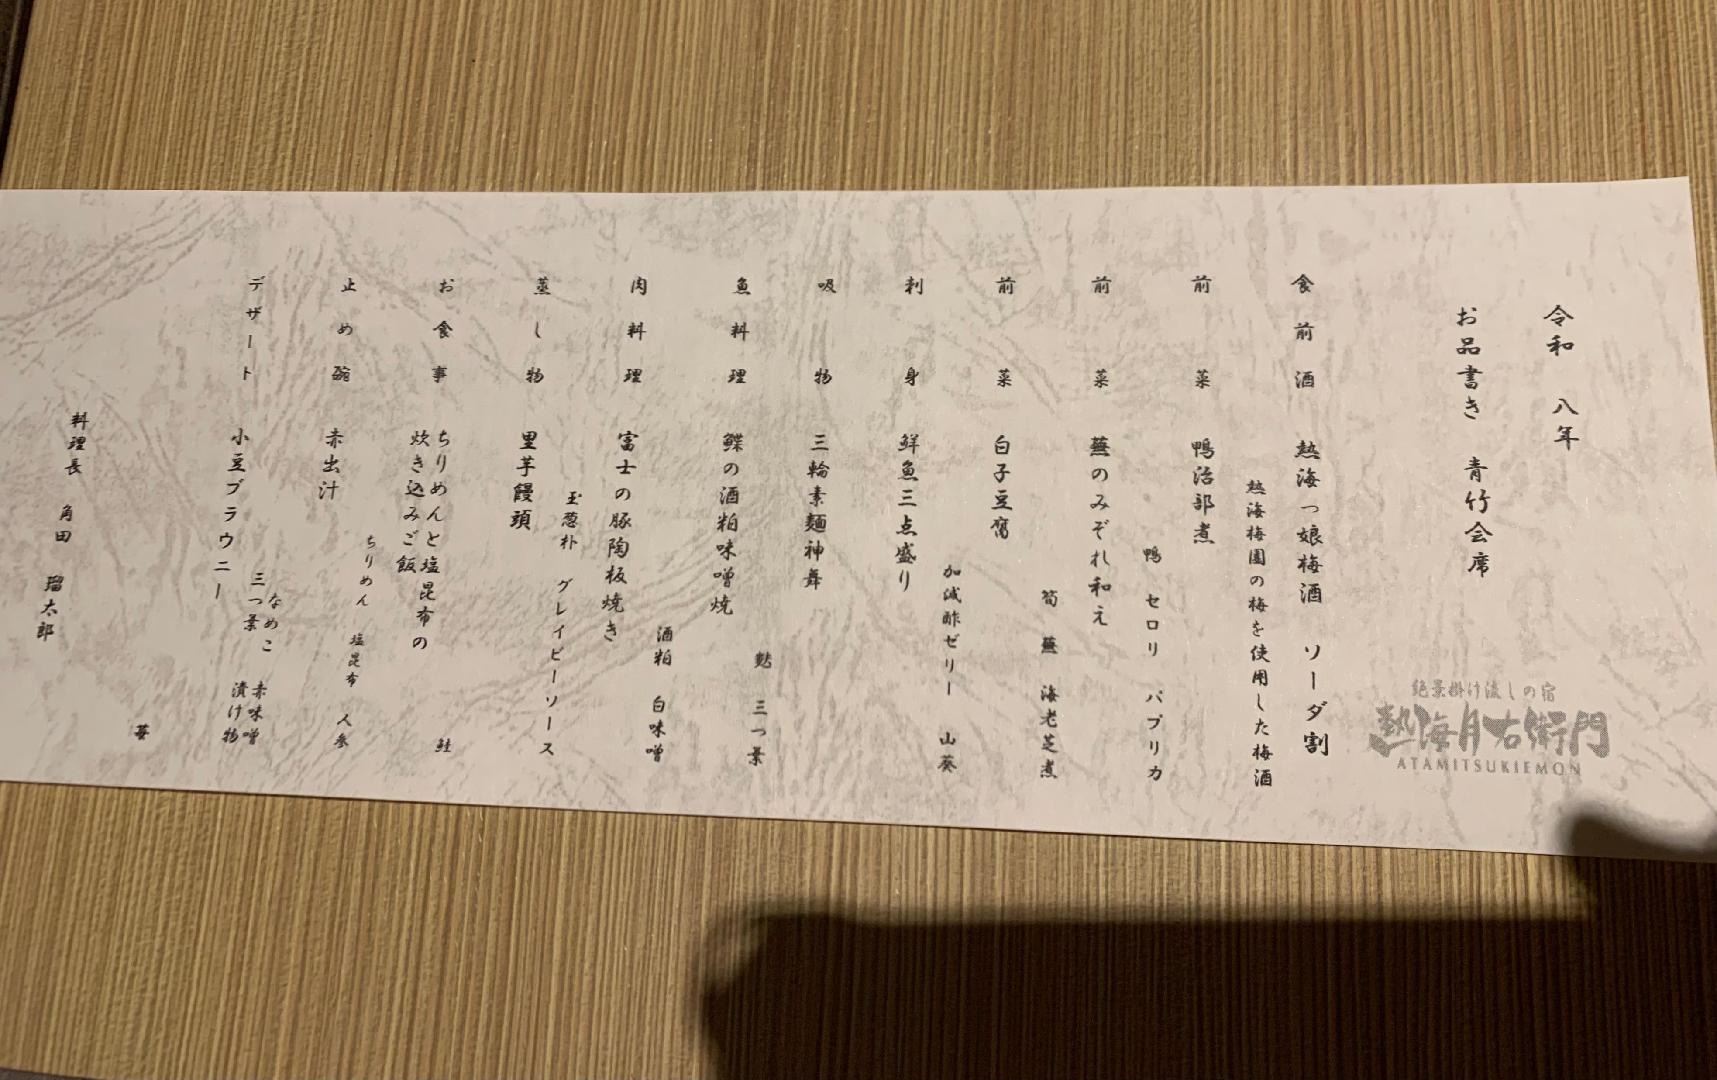 令和 八年
お品書き 青竹会席
絶景掛け流しの宿
熱海月右衛門
ATAMITSUKIEMON
食前酒 熱海っ娘梅酒 ソーダ割
熱海梅園の梅を使用した梅酒
前菜 鴨治部煮
鴨 セロリ パプリカ
前菜 蕪のみぞれ和え
筍 蕪 海老芝煮
前菜 白子豆腐
加減酢ゼリー 山葵
刺身 鮮魚三点盛り
吸物 三輪素麺神舞
麩 三つ葉
魚料理 鰈の酒粕味噌焼
酒粕 白味噌
肉料理 富士の豚陶板焼き
玉葱朴 グレイビーソース
蒸し物 里芋饅頭
鮭
お食事 ちりめんと塩昆布の
炊き込みご飯
ちりめん 塩昆布 人参
止め碗 赤出汁
なめこ 赤味噌
三つ葉 漬け物
デザート 小豆ブラウニー
苺
料理長 角田 瑠太郎